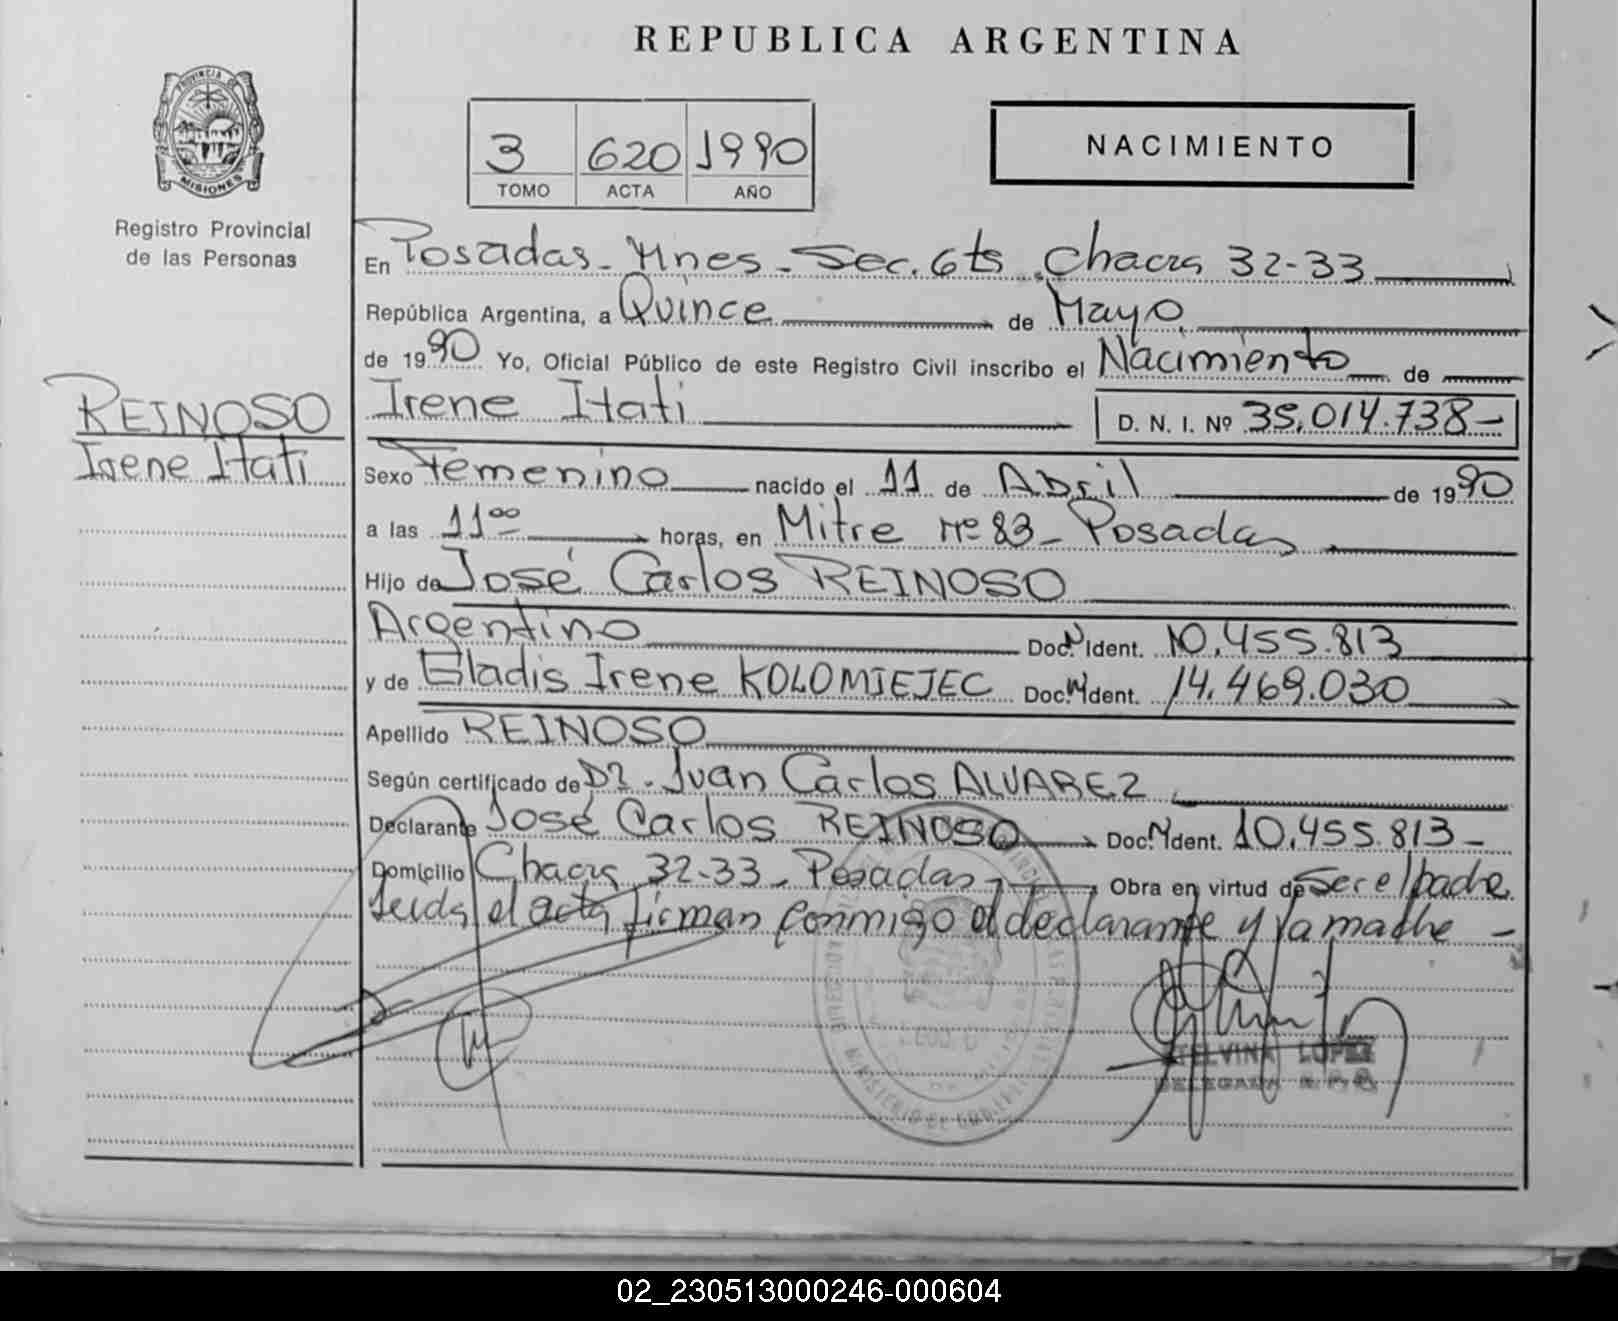 REPUBLICA ARGENTINA
PROVINCIA DE
MISIONES
Registro Provincial
de las Personas
3 620 1990
TOMO ACTA AÑO
NACIMIENTO
En Posadas - Mnes - Sec. 6ta Chacra 32-33
República Argentina, a Quince de Mayo
de 1990 Yo, Oficial Público de este Registro Civil inscribo el Nacimiento de
Irene Itati D. N. I. Nº 35.014.738-
REINOSO
Irene Itati
Sexo Femenino nacido el 11 de Abril de 1990
a las 11 00 horas, en Mitre nº 83 - Posadas
Hijo de José Carlos REINOSO
Argentino Doc. N Ident. 10.455.813
y de Gladis Irene KOLOMIEJEC Doc. N Ident. 14.469.030
Apellido REINOSO
Según certificado de Dr. Juan Carlos ALVAREZ
Declarante José Carlos REINOSO Doc. N Ident. 10.455.813-
Domicilio Chacra 32-33 - Posadas - Obra en virtud de Ser el padre
Leida el acta firman conmigo el declarante y la madre -
ETELVINA LOPEZ
DELEGADA
02_230513000246-000604